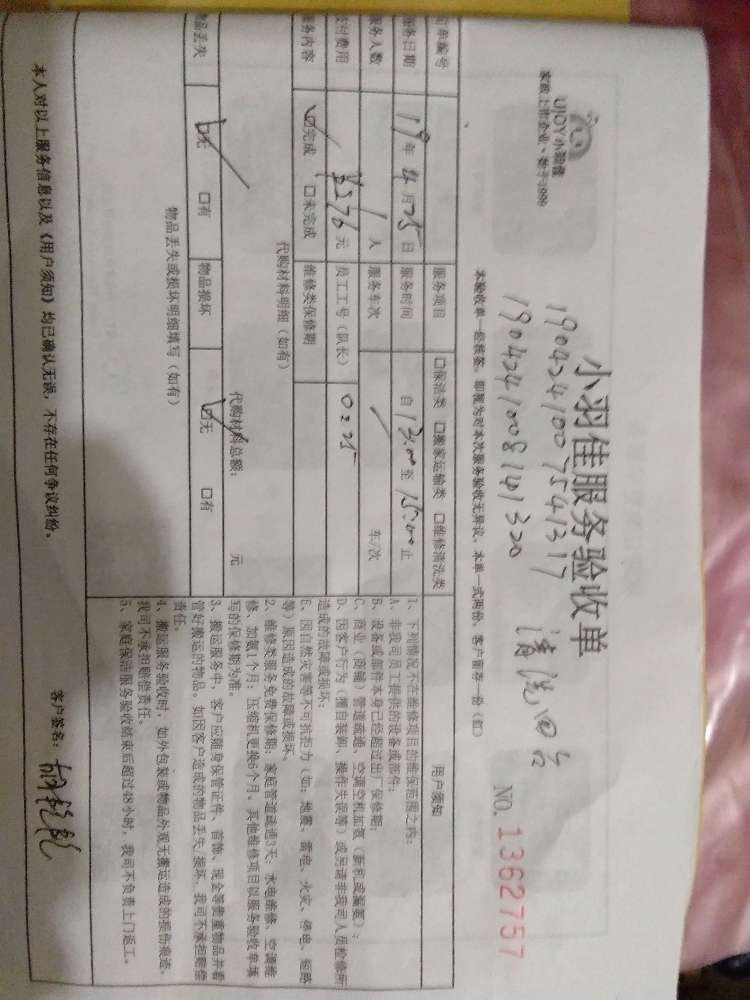 UJOY小羽佳
家政上市企业·始于1999
小羽佳服务验收单
1904241007541317
190424100814 1320
清洗四台
NO. 1362757
本验收单一经核签，即视为对本次服务验收无异议。本单一式两份，客户留存一份（红）
订单编号
服务项目 □保洁类 □搬家运输类 □维修清洗类
服务日期 19年4月25日 服务时间 自13:00至15:00止
服务人数 1人 服务车次 车/次
支付费用 ¥376元 员工工号（队长） 0225
服务内容 ☑完成 □未完成 维修类保修期
代购材料明细（如有）
代购材料总额： 元
物品丢失 ☑无 □有 物品损坏 ☑无 □有
物品丢失或损坏明细填写（如有）
用户须知
1、下列情况不在维修项目的维保范围之内：
A、非我司员工提供的设备或部件；
B、设备或部件本身已经超过出厂保修期；
C、商业（商铺）管道疏通、空调空机加氨（新机或漏氨）；
D、因客户行为（擅自装卸、操作失误等）或另请非我司人员检修所
造成的故障或损坏；
E、因自然灾害等不可抗拒力（如：地震、雷电、火灾、停电、短路
等）原因造成的故障或损坏。
2、维修类服务免费保修期：家庭管道疏通3天；水电维修、空调维
修、加氨1个月；压缩机更换6个月。其他维修项目以服务验收单填
写的保修期为准。
3、搬运服务中，客户应随身保管证件、首饰、现金等贵重物品并看
管好搬运的物品。如因客户造成的物品丢失/损坏，我司不承担赔偿
责任。
4、搬运服务验收时，如外包装或物品外观无搬运造成的损伤痕迹，
我司不承担赔偿责任。
5、家庭保洁服务验收结束后超过48小时，我司不负责上门返工。
本人对以上服务信息以及《用户须知》均已确认无误，不存在任何争议纠纷。
客户签名：